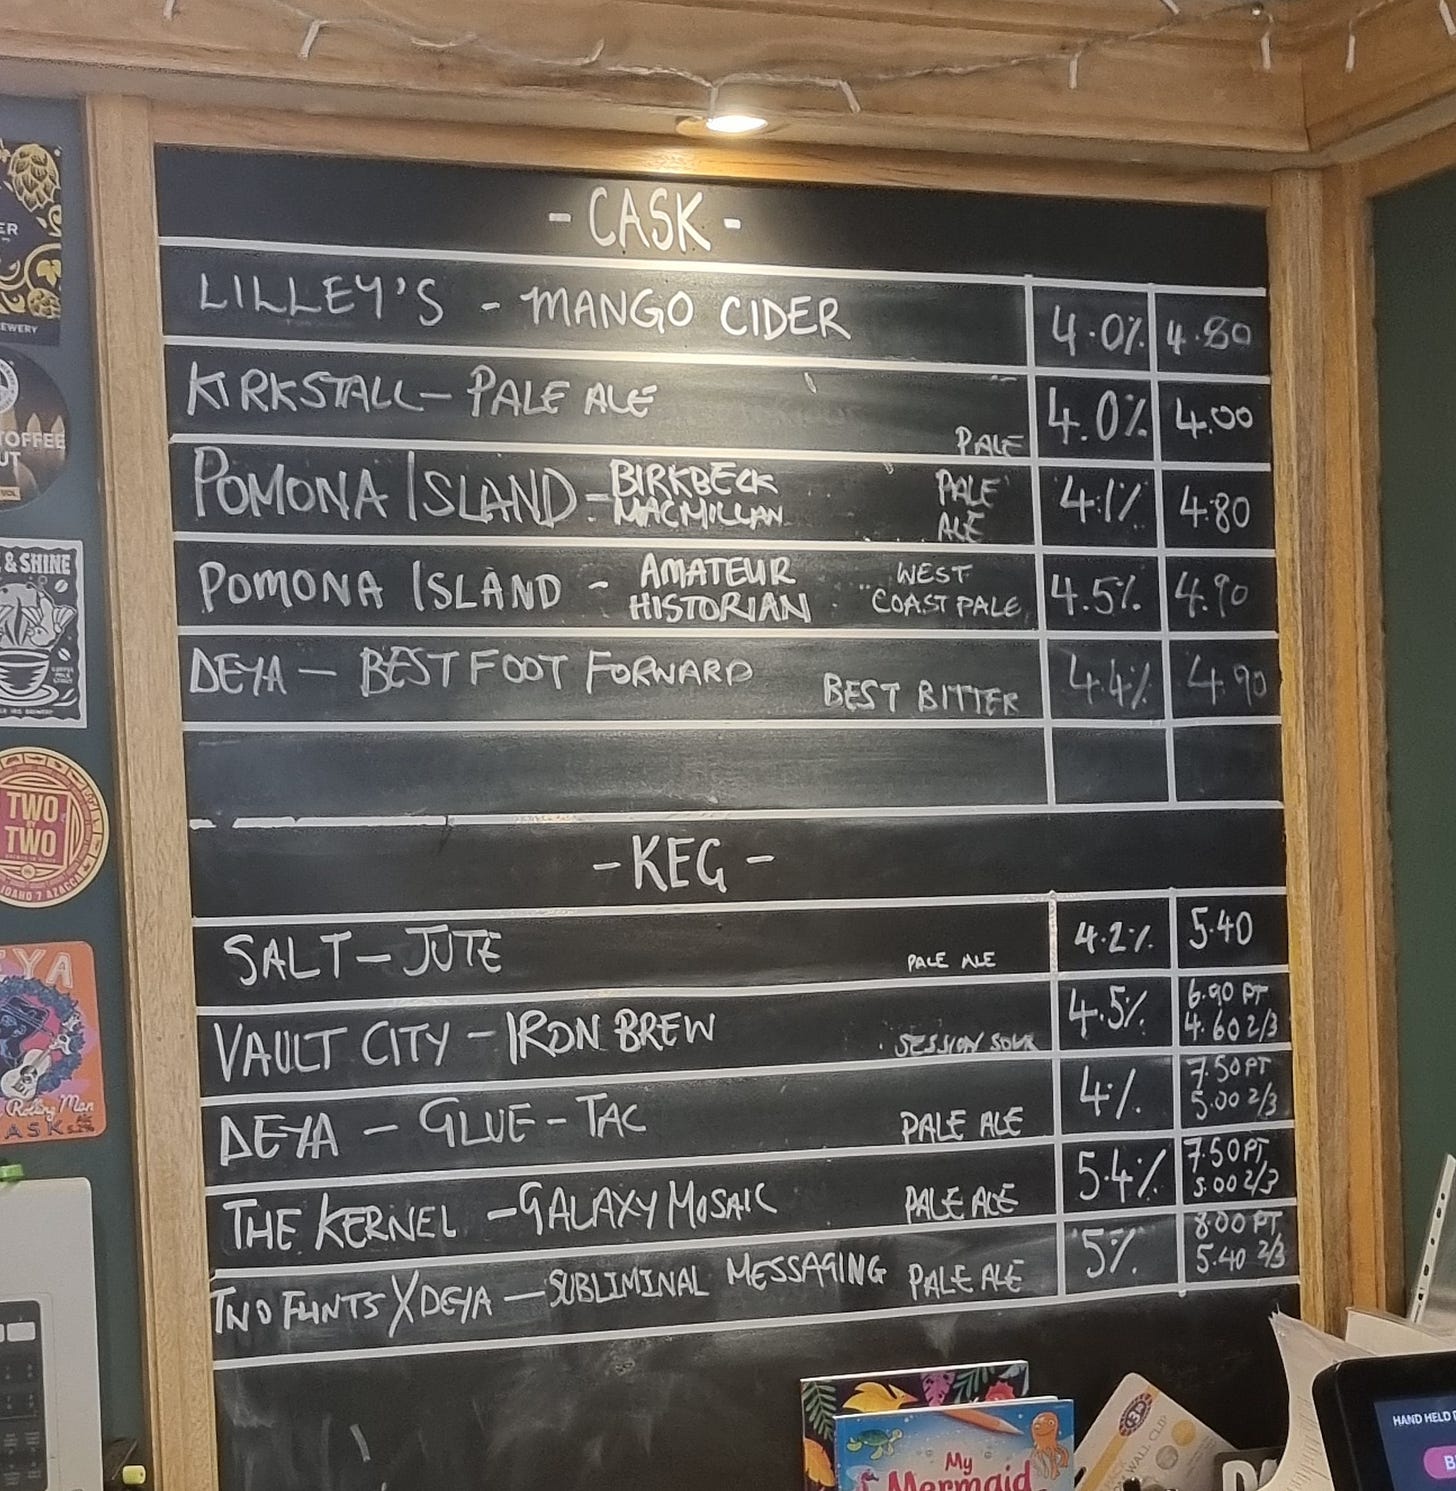 - CASK -
LILLEY'S - MANGO CIDER 4.0% 4.80
KIRKSTALL - PALE ALE PALE 4.0% 4.00
POMONA ISLAND - BIRKBECK MACMILLAN PALE ALE 4.1% 4.80
POMONA ISLAND - AMATEUR HISTORIAN WEST COAST PALE 4.5% 4.90
DEYA - BEST FOOT FORWARD BEST BITTER 4.4% 4.90
- KEG -
SALT - JUTE PALE ALE 4.2% 5.40
VAULT CITY - IRON BREW SESSION SOUR 4.5% 6.90 PT 4.60 2/3
DEYA - GLUE-TAC PALE ALE 4% 7.50 PT 5.00 2/3
THE KERNEL - GALAXY MOSAIC PALE ALE 5.4% 7.50 PT 5.00 2/3
TWO FLINTS X DEYA - SUBLIMINAL MESSAGING PALE ALE 5% 8.00 PT 5.40 2/3
EWERY
TOFFEE
UT
& SHINE
TWO
TWO
IDAHO 7 AZACCA
EYA
Rolling Man
CASK
My
Mermaid
HAND HELD